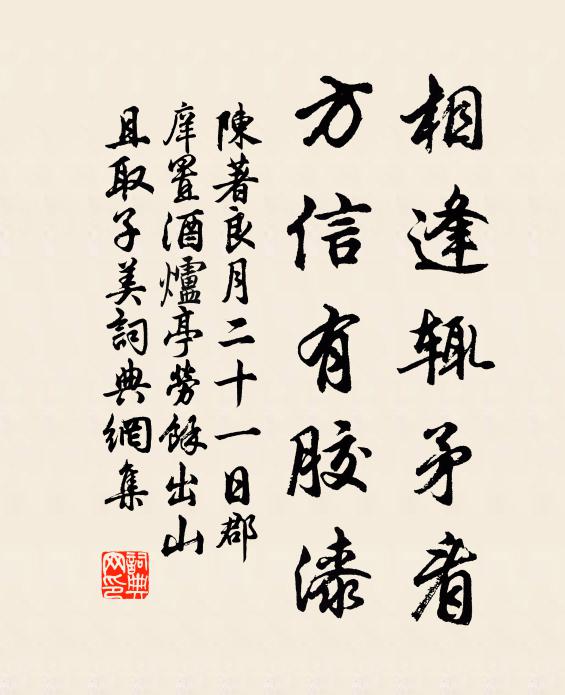 相逢辄矛者
方信有胶漆
陳著良月二十一日郡
庠置酒爐亭勞餘出山
且取子美詞典網集
詞典网印